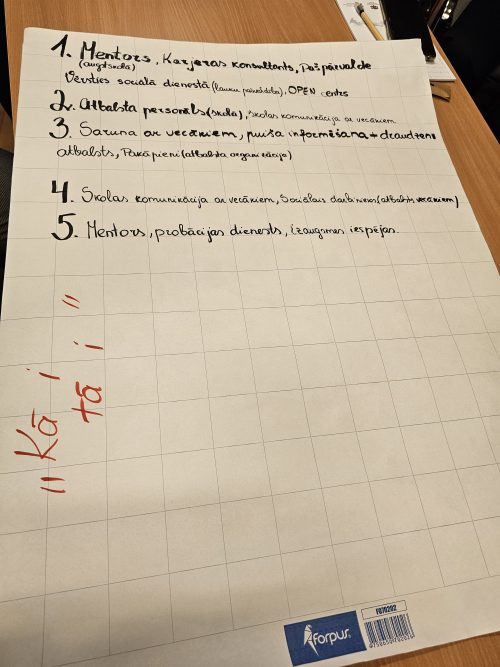 1. Mentors, Karjeras konsultants, Pašpārvalde
(augstskola)
Vērsties sociālā dienestā (lauku pašvaldība), OPEN centrs
2. Atbalsta personāls (skola), skolas komunikācija ar vecākiem
3. Saruna ar vecākiem, puiša informēšana + draudzenes
atbalsts, Pakāpieni (atbalsta organizācija)
4. Skolas komunikācija ar vecākiem, Sociālais darbinieks (atbalsts vecākiem)
5. Mentors, probācijas dienests, izaugsmes iespējas.
"Kā i
tā i"
forpus
FO70202